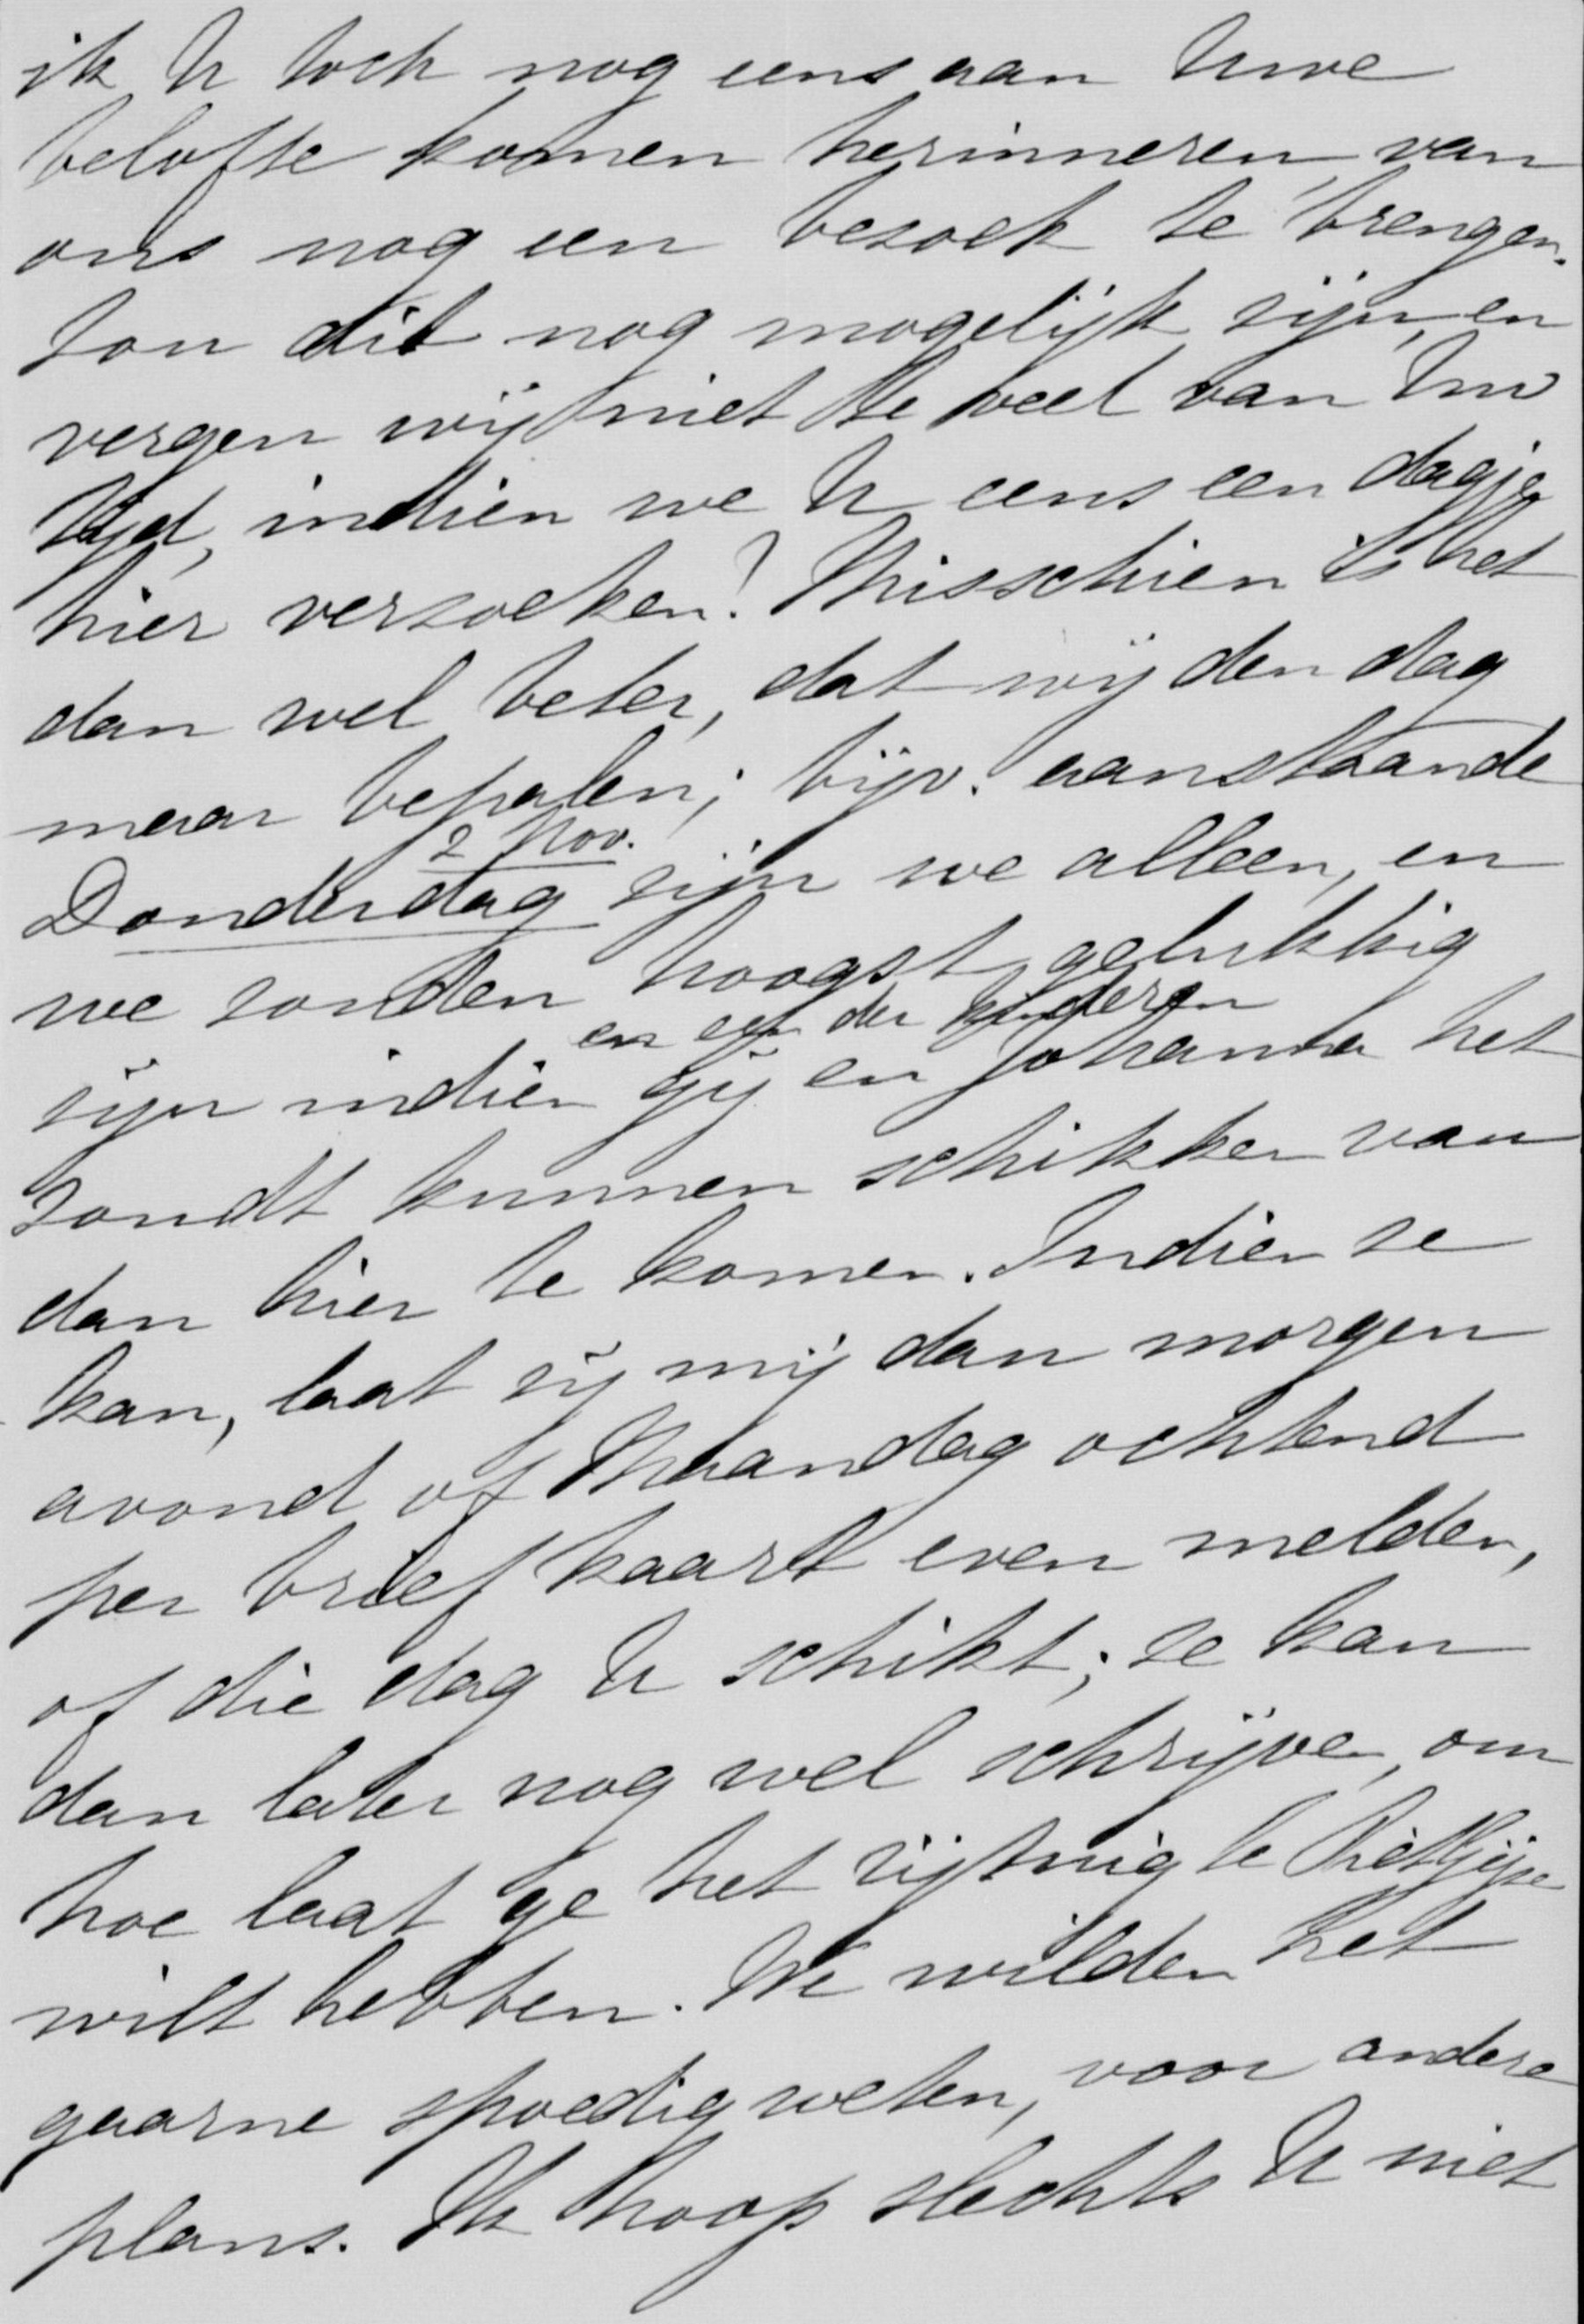 ik U toch nog eens aan Uwe
belofte komen herinneren van
ons nog een bezoek te brengen.
Zou dit nog mogelijk zijn, en
vergen wij niet te veel van Uw
tijd, indien we U eens een dagje
hier verzoeken? Misschien is het
dan wel beter, dat wij den dag
maar bepalen; bijv. aanstaande
2 Nov.
Donderdag zijn we alleen, en
we zouden hoogst gelukkig
en een der kinderen
zijn indien gij en Johanna het
zoudt kunnen schikken van
dan hier te komen. Indien ze
kan, laat zij mij dan morgen
avond of Maandag ochtend
per briefkaart even melden,
of die dag U schikt; ze kan
dan later nog wel schrijven, om
hoe laat ge het rijtuig te
wilt hebben. We wilden het
gaarne spoedig weten, voor andere
plans. Ik hoop slechts U niet